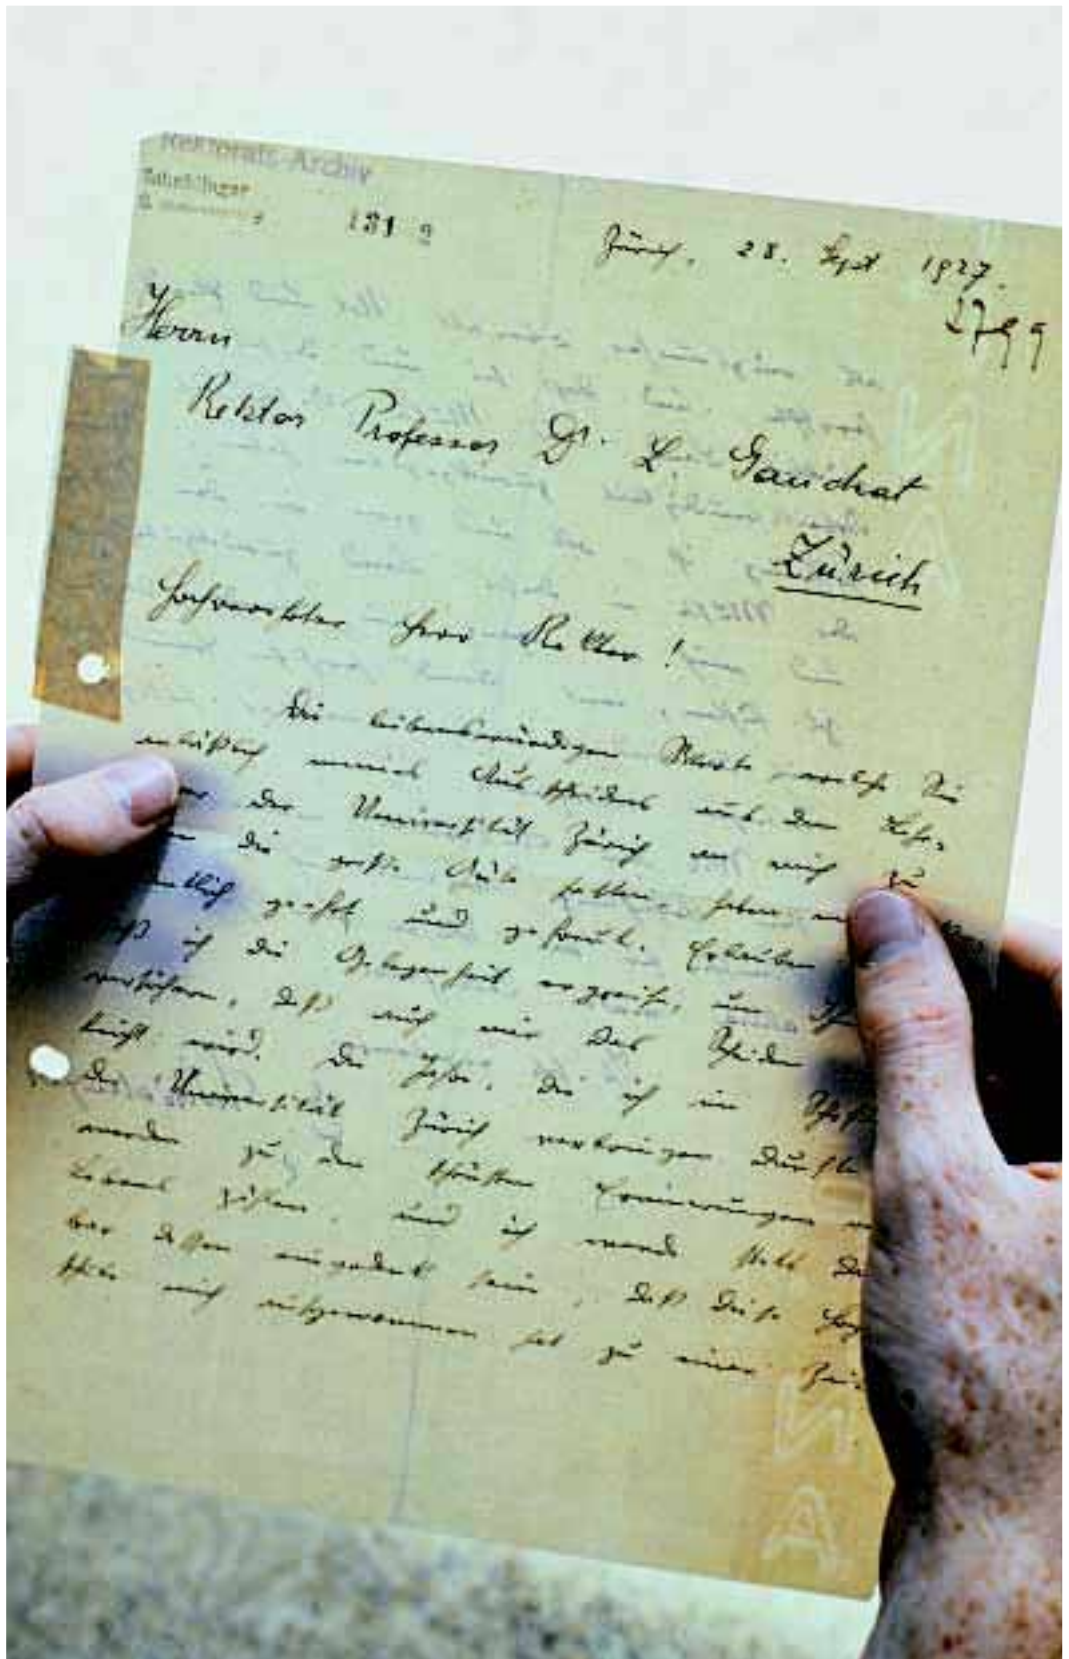 Rektorats-Archiv
131 9
Zürich, 28. Sept 1927.
Herrn
Rektor Professor Dr. L. Gauchat
Zürich
Hochverehrter Herr Rektor!
Die liebenswürdigen Worte, welche Sie
anläßlich meines Ausscheidens aus dem Lehr-
der Universität Zürich an mich zu
die große Güte hatten, haben
geehrt und gefreut. Erlauben
ich die Gelegenheit ergreife, um
versichern, daß auch mir das Scheiden
wird. Die Jahre, die ich im
der Universität Zürich verbringen durfte
werden zu den schönsten Erinnerungen
Lebens zählen, und ich werde stets
bar dessen eingedenk sein, daß diese
mich aufgenommen hat zu einer